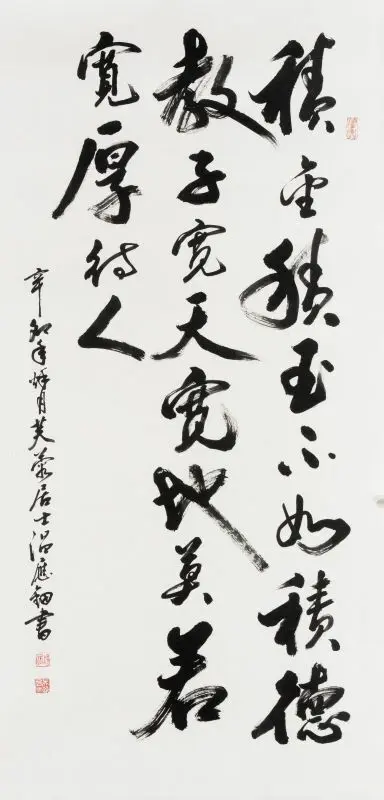 積金積玉不如積德
教子寬天寬地莫若
寬厚待人
辛卯年月芙蓉居士温應書